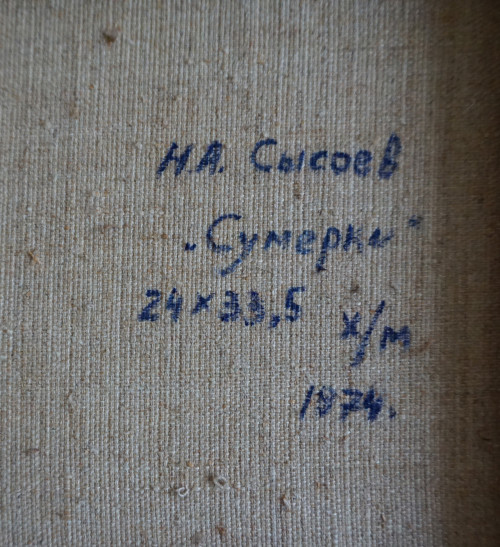 Н.А. Сысоев
„Сумерки"
24×33,5
х/м
1974.